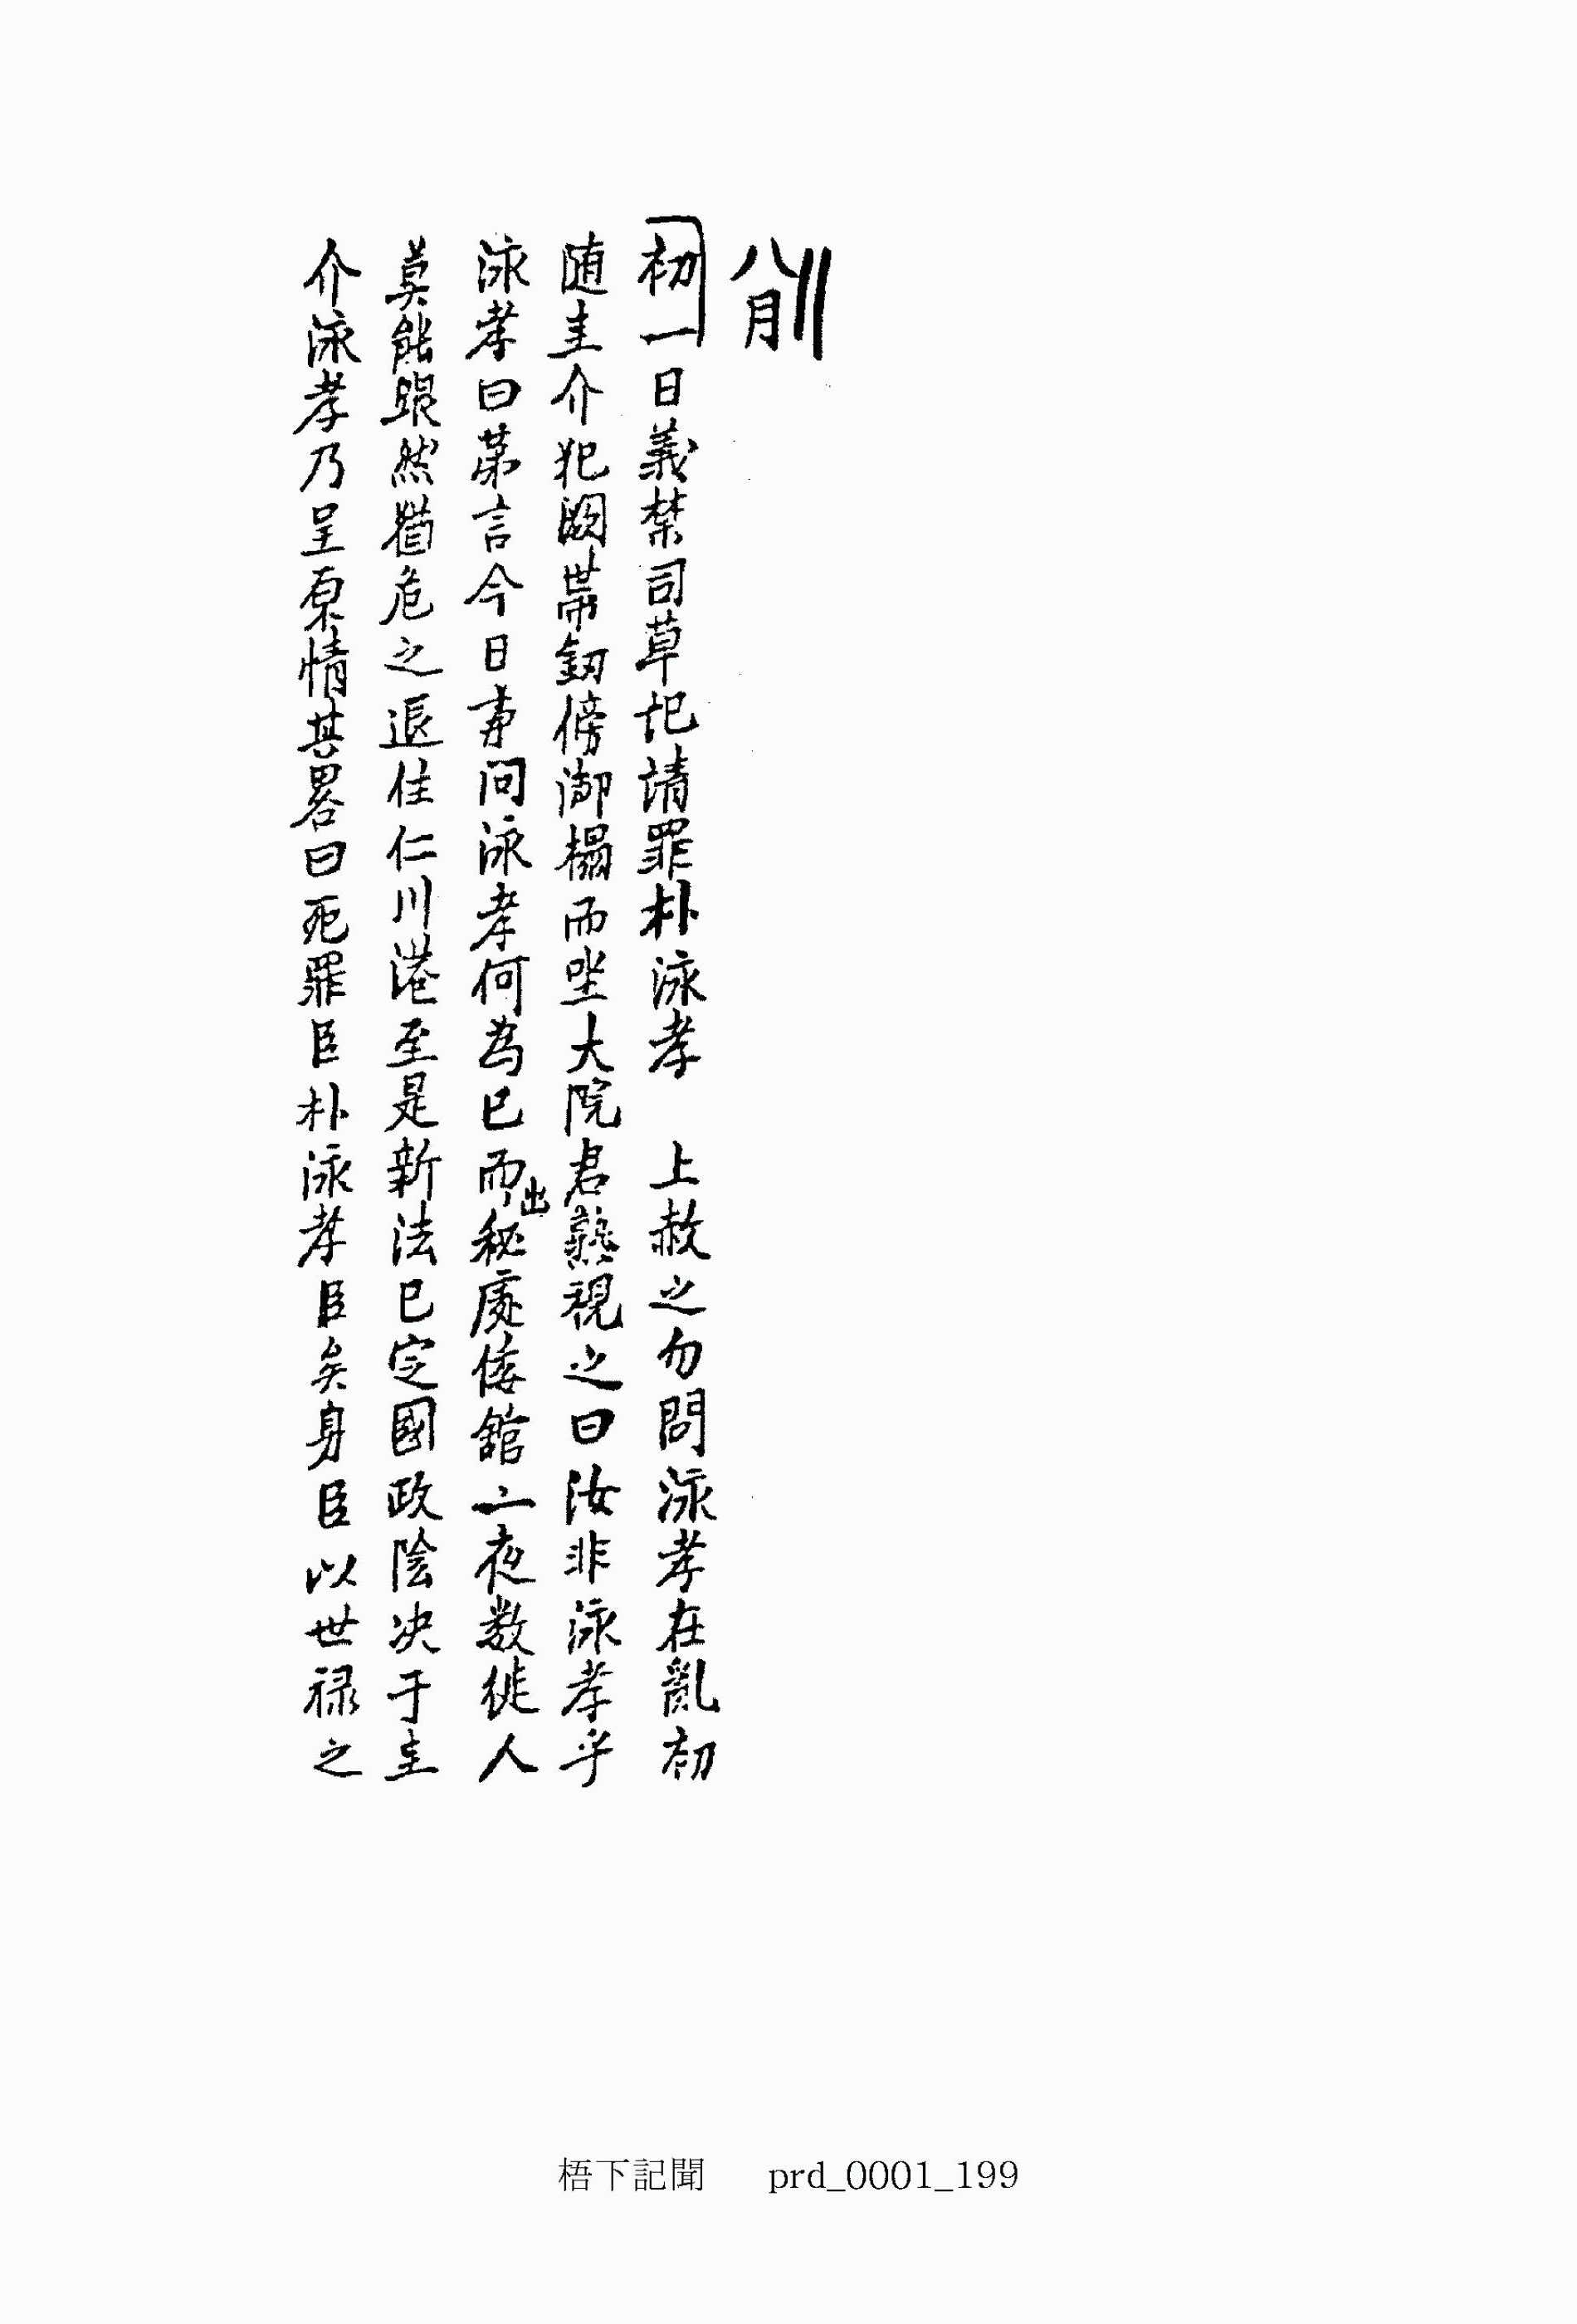 八月
初一日義禁司草記請罪朴泳孝 上赦之勿問泳孝在亂初
随圭介犯闕帶釰傍御榻而坐大院君熟視之曰汝非泳孝乎
泳孝曰苐言今日事问泳孝何為已而出秘處倭舘一夜数徙人
莫能跟然猶危之退住仁川港至是新法已定國政陰决于圭
介泳孝乃呈原情其畧曰死罪臣朴泳孝臣矣身臣以世禄之
梧下記聞 prd_0001_199